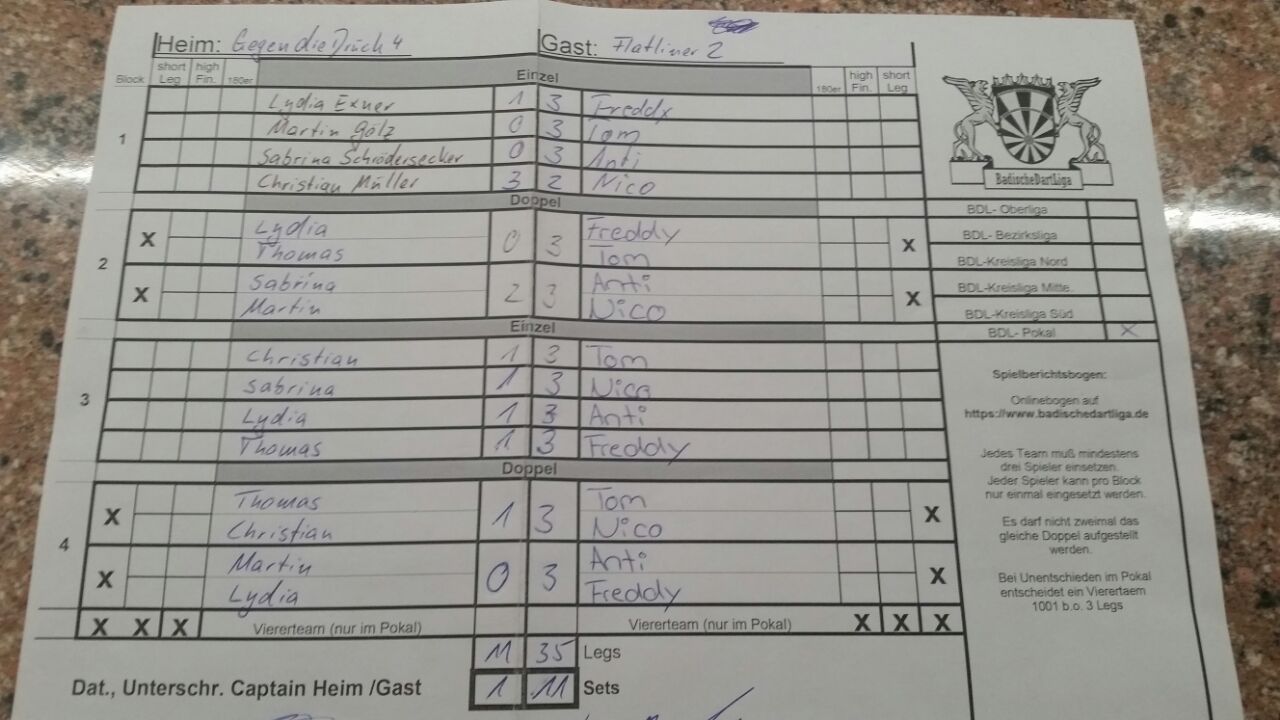 Heim: Gegen die Drück 4 Gast: Flatliner 2
Block short Leg high Fin. 180er Einzel 180er high Fin. short Leg
1
Lydia Exner 1 3 Freddy
Martin Gölz 0 3 Tom
Sabrina Schrödersecker 0 3 Anti
Christian Müller 3 2 Nico
Doppel
2
X Lydia 0 3 Freddy X
Thomas Tom
X Sabrina 2 3 Anti X
Martin Nico
Einzel
3
Christian 1 3 Tom
Sabrina 1 3 Nico
Lydia 1 3 Anti
Thomas 1 3 Freddy
Doppel
4
X Thomas 1 3 Tom X
Christian Nico
X Martin 0 3 Anti X
Lydia Freddy
X X X Viererteam (nur im Pokal) Viererteam (nur im Pokal) X X X
11 35 Legs
Dat., Unterschr. Captain Heim /Gast 1 11 Sets
BadischeDartLiga
BDL- Oberliga
BDL- Bezirksliga
BDL-Kreisliga Nord
BDL-Kreisliga Mitte.
BDL-Kreisliga Süd
BDL- Pokal X
Spielberichtsbogen:
Onlinebogen auf
https://www.badischedartliga.de
Jedes Team muß mindestens
drei Spieler einsetzen.
Jeder Spieler kann pro Block
nur einmal eingesetzt werden.
Es darf nicht zweimal das
gleiche Doppel aufgestellt
werden.
Bei Unentschieden im Pokal
entscheidet ein Vierertaem
1001 b.o. 3 Legs